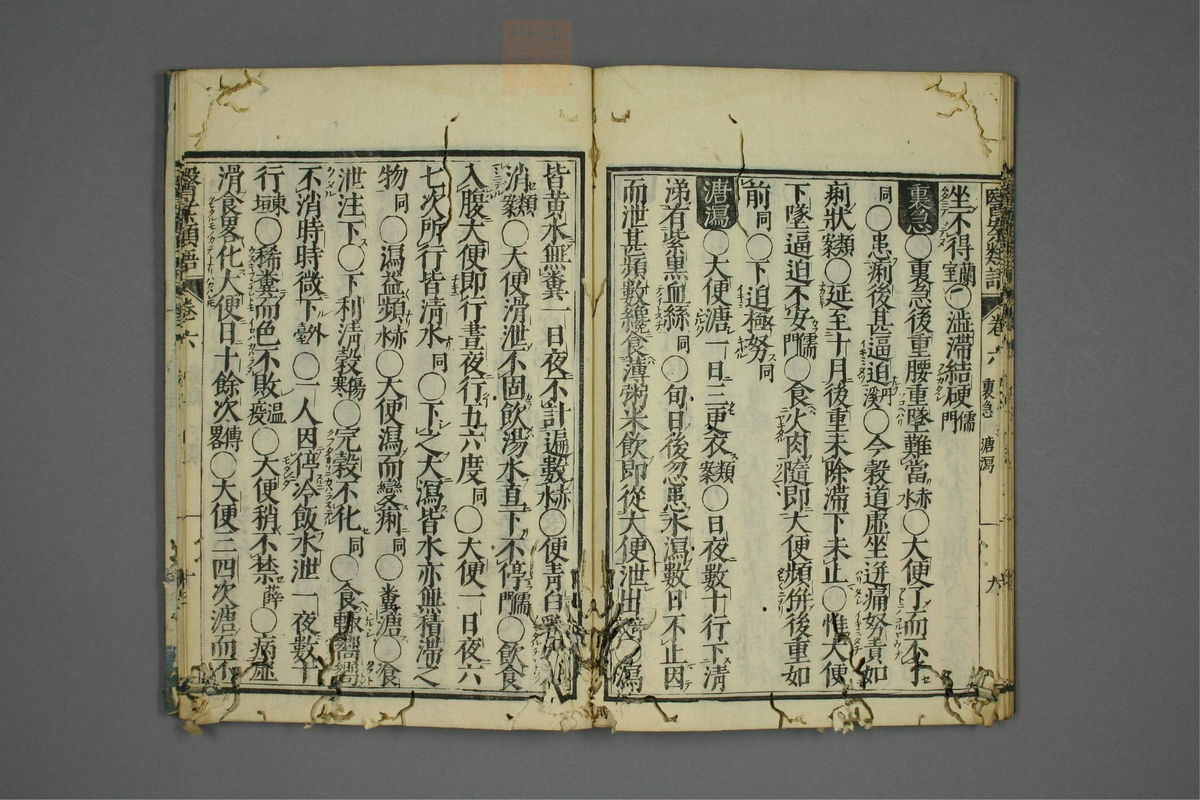 坐不得蘭室○澁滯結梗儒門
裏急○裏急後重腰重墜難當赤水○大便了而不了
同○患痢後甚逼迫丹溪○今穀道虛坐迸痛努責如
痢狀類案○延至十月後重未除滯下未止○惟大便
下墜逼迫不安儒門○食火肉隨即大便頻併後重如
前同○下迫極努同
溏瀉○大便溏一日三更衣類案○日夜數十行下清
涕有紫黑血絲同○旬日後忽患水瀉數日不止因
而泄甚頻數纔食薄粥米飲即從大便泄出○瀉
皆黃水無糞一日夜不計遍數赤水○便青白
消類案○大便滑泄不固飲湯水直下不停儒門○飲食
入腹大便即行晝夜行五六度同○大便一日夜六
七次所行皆清水同○下之大瀉皆水亦無積滯之
物同○瀉益頻赤水○大便瀉而變痢同○糞溏○食
泄注下○下利清穀傷寒○完穀不化同○食輒嚮嚮
不消時時微下外臺○一人因停冷飯水泄一夜數十
行東垣○稀糞而色不敗溫疫○大便稍不禁薛○病虛
滑食畧化大便日十餘次傳畧○大便三四次溏而不
卷六 裏急 溏瀉 九